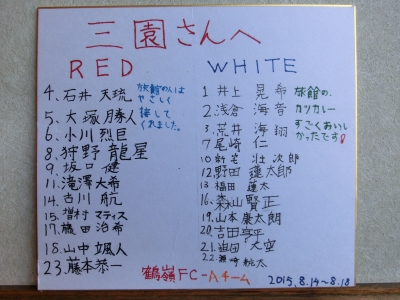 三園さんへ
RED
4. 石井 天琉
5. 大塚 勝人
6. 小川 烈巨
8. 狩野 龍星
9. 坂口 健
11. 滝澤 大希
14. 古川 航
15. 増村 マティス
17. 横田 治希
18. 山中 立風人
23. 藤本 恭一
旅館の人は
やさしく
接して
くれました。
WHITE
1 井上 晃希
2. 浅倉 海音
3. 荒井 海翔
7 尾崎 仁
10 新宅 壮次郎
12 野田 蓮太郎
13 福田 蓮太
16. 森山 賢正
19. 山本 慶太朗
20. 吉田 享平
21. 大空
22. 桃太
旅館の
カツカレー
すごくおいし
かったです!
鶴嶺FC-Aチーム
2015.8.14~8.18